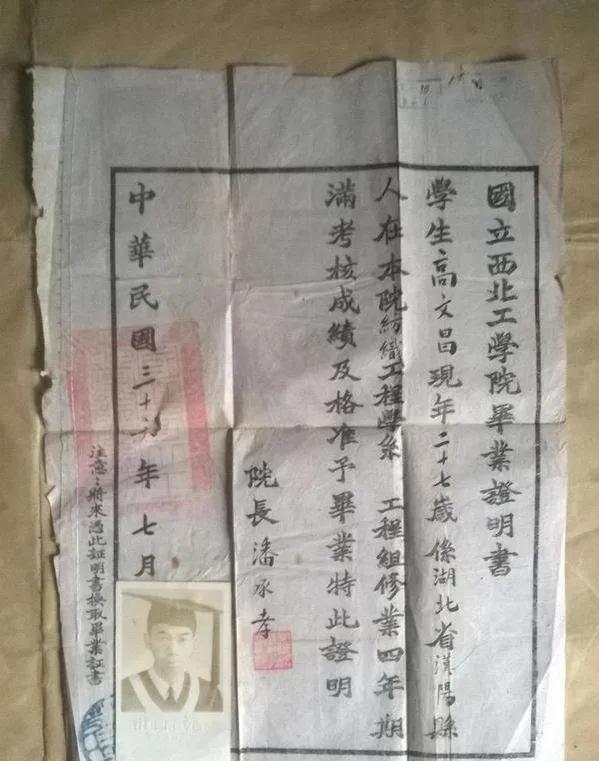 國立西北工學院畢業證明書
學生高文昌現年二十七歲係湖北省漢陽縣
人在本院紡織工程學系 工程組修業四年期
滿考核成績及格准予畢業特此證明
院長潘承孝
中華民國三十 年七月
注意：將來憑此証明書換取畢業証書